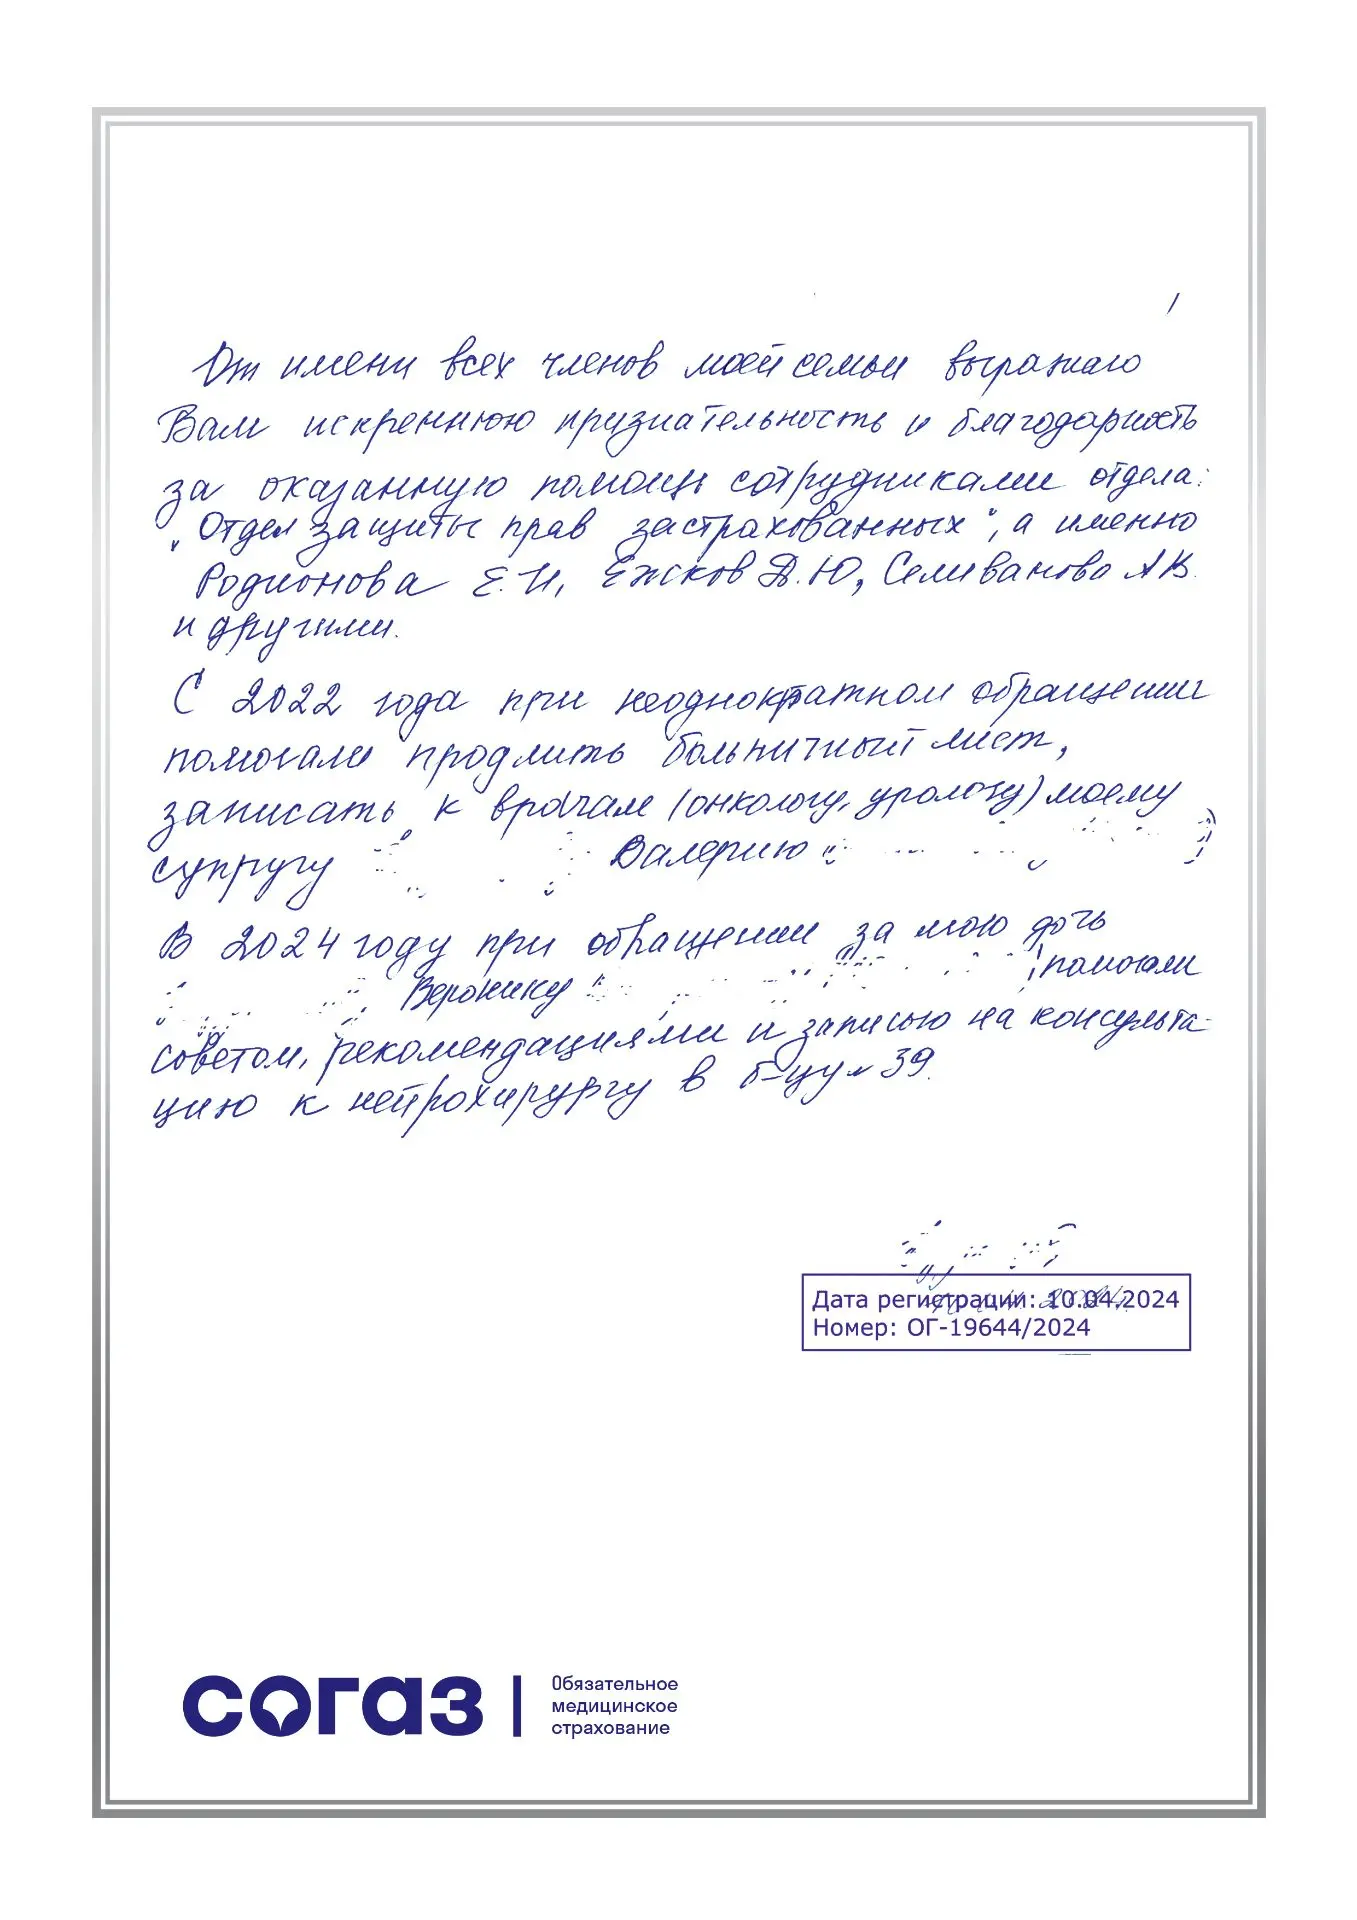 От имени всех членов моей семьи выражаю
Вам искреннюю признательность и благодарность
за оказанную помощь сотрудниками отдела:
„Отдел защиты прав застрахованных", а именно
Родионова Е.И, Ежсков Д.Ю, Селиванова А.В.
и другими.
С 2022 года при неоднократном обращении
помогали продлить больничный лист,
записать к врачам (онкологу, урологу) моему
супругу Валерию
В 2024 году при обращении за мою дочь
Веронику помогали
советом, рекомендациями и записью на консульта-
цию к нейрохирургу в б-цу № 39.
Дата регистрации: 10.04.2024
Номер: ОГ-19644/2024
согаз
Обязательное
медицинское
страхование